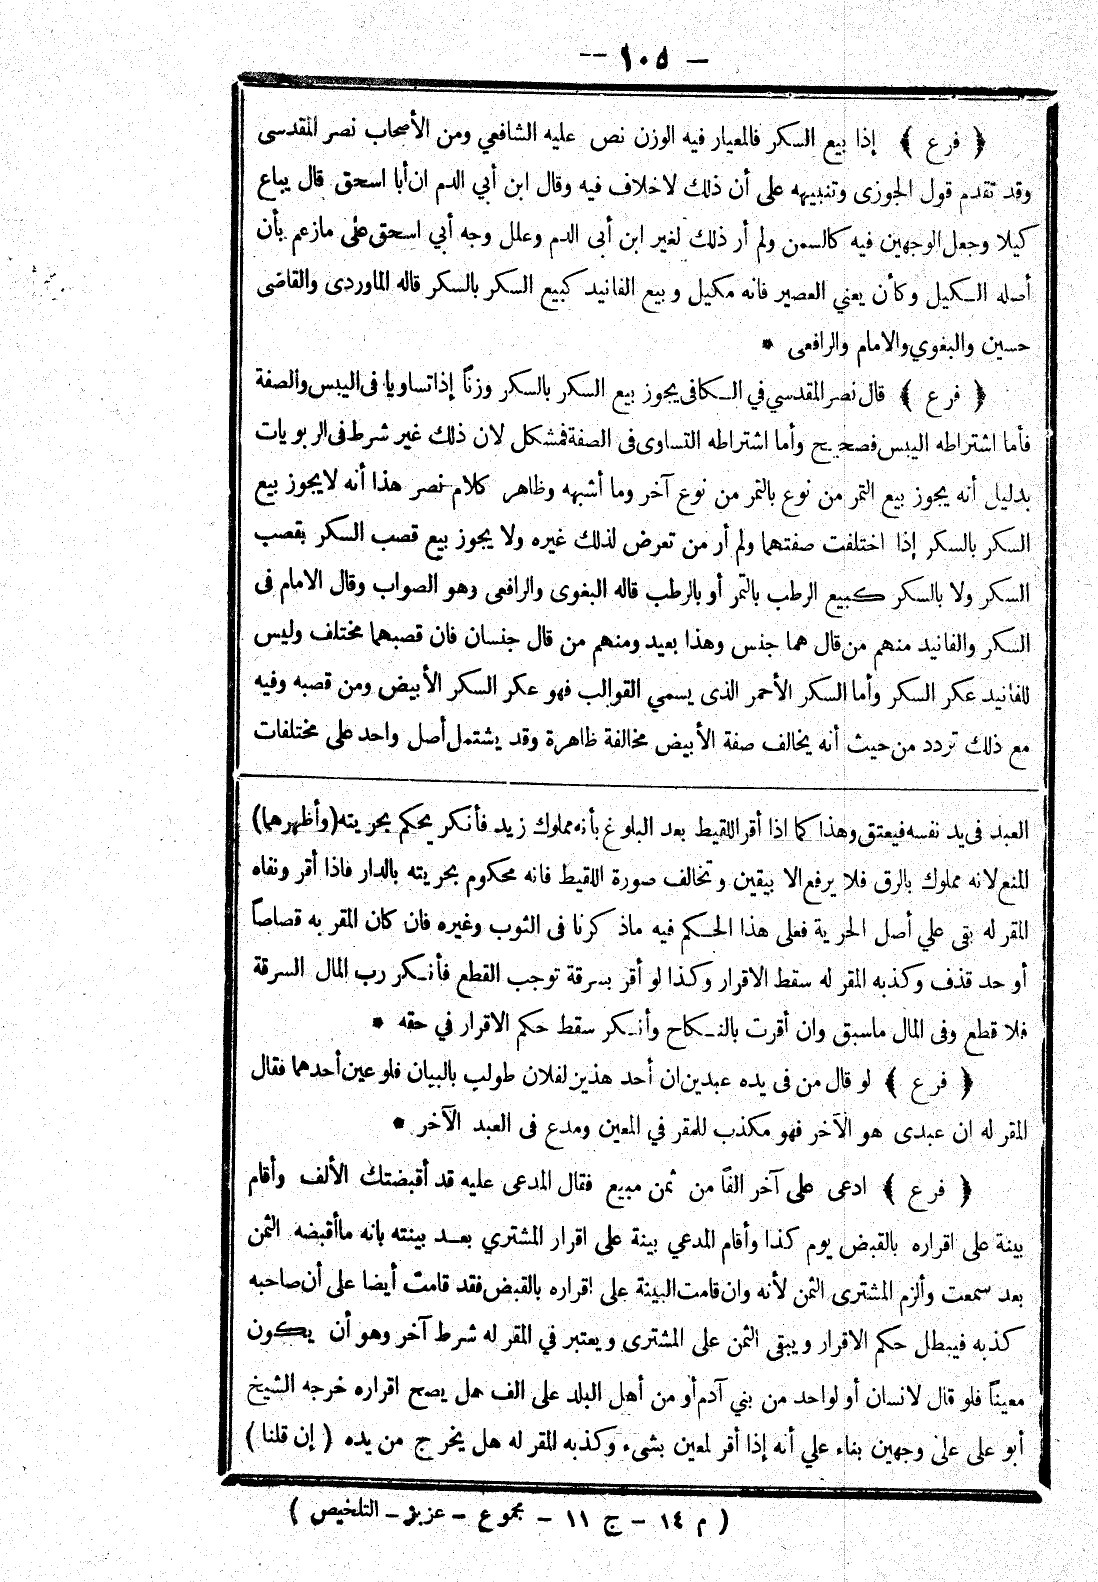 — ١٠٥ —
﴿ فرع ﴾ إذا بيع السكر فالمعيار فيه الوزن نص عليه الشافعي ومن الأصحاب نصر المقدسى
وقد تقدم قول الجوزى وتنبيهه على أن ذلك لاخلاف فيه وقال ابن أبي الدم ان أبا اسحق قال يباع
كيلا وجعل الوجهين فيه كالسمن ولم أر ذلك لغير ابن أبى الدم وعلل وجه أبي اسحق على مازعم بأن
أصله الكيل وكأن يعني العصير فانه مكيل وبيع الفانيد كبيع السكر بالسكر قاله الماوردى والقاضى
حسين والبغوي والامام والرافعى *
﴿ فرع ﴾ قال نصر المقدسي في الكافى يجوز بيع السكر بالسكر وزناً إذا تساويا فى اليبس والصفة
فأما اشتراطه اليبس فصحيح وأما اشتراطه التساوى فى الصفة فمشكل لان ذلك غير شرط فى الربويات
بدليل أنه يجوز بيع التمر من نوع بالتمر من نوع آخر وما أشبهه وظاهر كلام نصر هذا أنه لا يجوز بيع
السكر بالسكر إذا اختلفت صفتهما ولم أر من تعرض لذلك غيره ولا يجوز بيع قصب السكر بقصب
السكر ولا بالسكر كبيع الرطب بالتمر أو بالرطب قاله البغوى والرافعى وهو الصواب وقال الامام فى
السكر والفانيد منهم من قال هما جنس وهذا بعيد ومنهم من قال جنسان فان قصبهما مختلف وليس
للفانيد عكر السكر وأما السكر الأحمر الذى يسمي القوالب فهو عكر السكر الأبيض ومن قصبه وفيه
مع ذلك تردد من حيث أنه يخالف صفة الأبيض مخالفة ظاهرة وقد يشتمل أصل واحد على مختلفات
العبد فى يد نفسه فيعتق وهذا كما اذا أقر اللقيط بعد البلوغ بأنه مملوك زيد فأنكر يحكم بحريته (وأظهرهما)
المنع لانه مملوك بالرق فلا يرفع الا بيقين وتخالف صورة اللقيط فانه محكوم بحريته بالدار فاذا أقر ونفاه
المقر له بقى علي أصل الحرية فعلى هذا الحكم فيه ماذكرنا فى الثوب وغيره فان كان المقر به قصاصاً
أو حد قذف وكذبه المقر له سقط الاقرار وكذا لو أقر بسرقة توجب القطع فأنكر رب المال السرقة
فلا قطع وفى المال ماسبق وان أقرت بالنكاح وأنكر سقط حكم الاقرار في حقه *
﴿ فرع ﴾ لو قال من فى يده عبدين ان أحد هذين لفلان طولب بالبيان فلو عين أحدهما فقال
المقر له ان عبدى هو الآخر فهو مكذب للمقر في المعين ومدع فى العبد الآخر *
﴿ فرع ﴾ ادعى على آخر الفاً من ثمن مبيع فقال المدعى عليه قد أقبضتك الألف وأقام
بينة على اقراره بالقبض يوم كذا وأقام المدعي بينة على اقرار المشتري بعد بينته بانه ماأقبضه الثمن
بعد سمعت وألزم المشترى الثمن لأنه وان قامت البينة على اقراره بالقبض فقد قامت أيضا على أن صاحبه
كذبه فيبطل حكم الاقرار ويبقى الثمن على المشترى ويعتبر في المقر له شرط آخر وهو أن يكون
معيناً فلو قال لانسان أو لواحد من بني آدم أو من أهل البلد على الف هل يصح اقراره خرجه الشيخ
أبو على على وجهين بناء علي أنه إذا أقر لمعين بشىء وكذبه المقر له هل يخرج من يده ( إن قلنا )
( م ١٤ — ج ١١ — مجموع — عزيز — التلخيص )